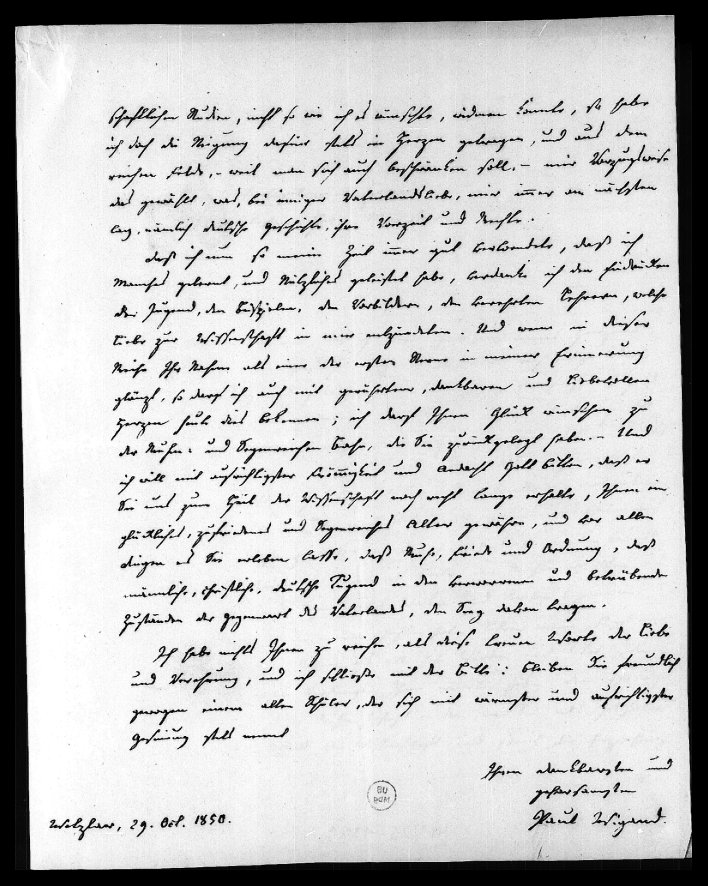 schaftlichen Studien, nicht so wie ich es wünschte, widmen konnte, so habe
ich doch die Neigung dafür stets im Herzen getragen, und aus dem
reichen Felde, – weil man sich auch beschränken soll, – mir Vorzugsweise
das gewählt, was, bei inniger Vaterlandsliebe, mir immer am nächsten
lag, nämlich deutsche Geschichte, ihre Vorzeit und Rechte.
Daß ich nun so meine Zeit immer gut verwendete, daß ich
Manches gelernt, und Nützliches geleistet habe, verdanke ich den Eindrücken
der Jugend, den Beispielen, den Vorbildern, den verehrten Lehrern, welche
Liebe zur Wissenschaft in mir entzündeten. Und wenn in dieser
Reihe Ihr Nahme als einer der ersten Sterne in meiner Erinnerung
glänzt, so darf ich auch mit gerührtem, dankbaren und Liebevollen
Herzen heut dies bekennen; ich darf Ihnen Glück wünschen zu
der Ruhm- und Segenreichen Bahn, die Sie zurückgelegt haben. – Und
ich will mit aufrichtigster Frömmigkeit und Andacht Gott bitten, daß er
Sie uns zum Heil der Wissenschaft noch recht lange erhalte, Ihnen ein
glückliches, zufriedenes und Segenreiches Alter gewähre, und vor allen
dingen es Sie erleben lasse, daß Ruhe, Friede und Ordnung, daß
männliche, christliche, deutsche Tugend in den verworrenen und betrübenden
Zuständen der Gegenwart des Vaterlandes, den Sieg davon tragen.
Ich habe nichts Ihnen zu reichen, als diese treuen Worte der Liebe
und Verehrung, und ich schließe mit der Bitte: bleiben Sie freundlich
gewogen einem alten Schüler, der sich mit wärmster und aufrichtigster
Gesinnung stets nennt
Ihren dankbarsten und
gehorsamsten
Paul Wigand.
Wetzlar, 29. Oct. 1850.